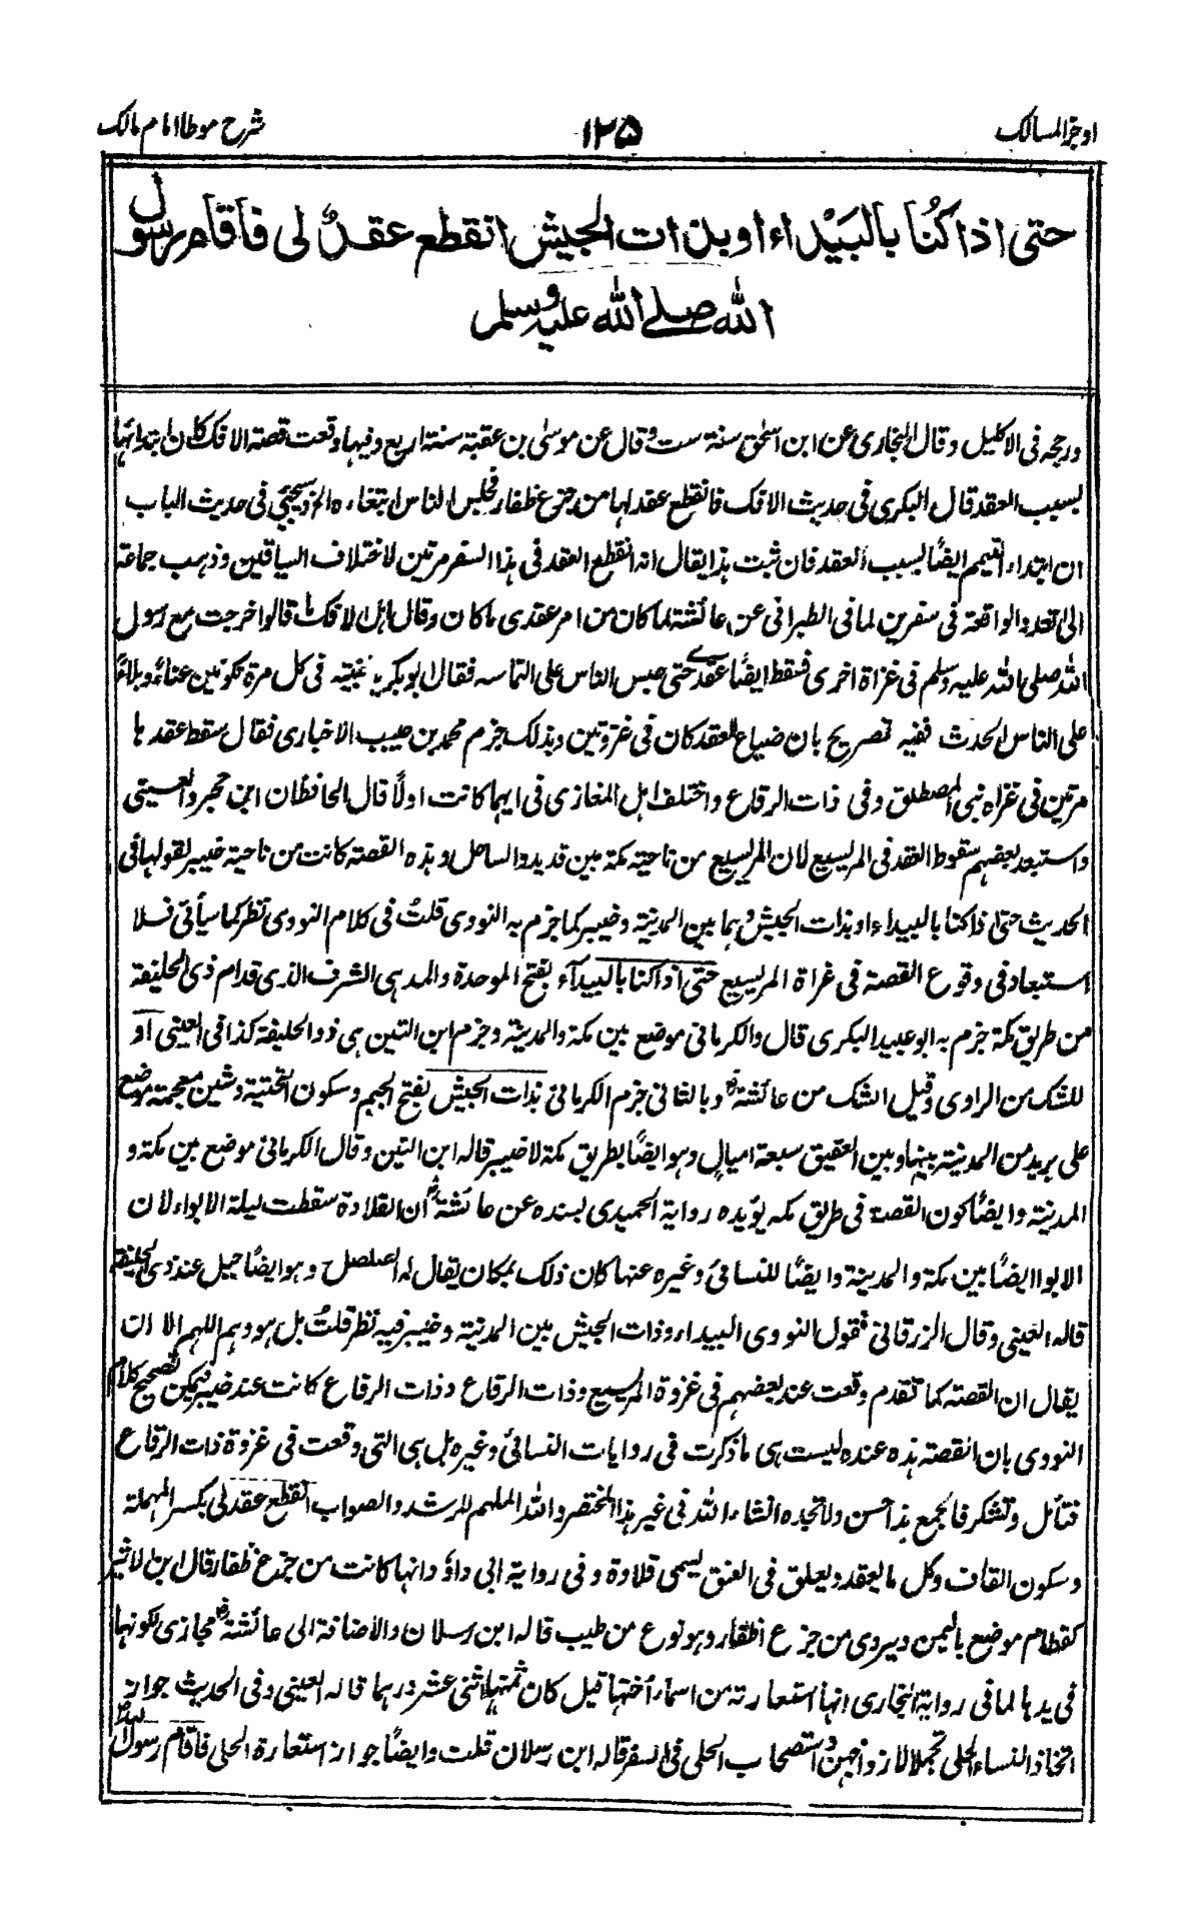 اوجز المسالك ۱۲۵ شرح موطا امام مالك
حتى اذا كُنَّا بالبَيْداء او بذات الجيش انقطع عقدٌ لى فاقام رسول
الله صلى الله عليه وسلم
ورجحه فى الاكليل وقال البخارى عن ابن اسحٰق سنة ست وقال عن موسىٰ بن عقبة سنة اربع وفيها وقعت قصة الافك كان ابتدائها
بسبب العقد قال البكرى فى حديث الافك فانقطع عقد لها من جزع ظفار فحبس الناس ابتغاءه الخ وسيجئ فى حديث الباب
ان ابتداء التيمم ايضًا بسبب العقد فان ثبت هذا يقال انه انقطع العقد فى هذا السفر مرتين لاختلاف السياقين وذهب جماعة
الى تعدد الواقعة فى سفرين لما فى الطبرانى عن عائشة لما كان من امر عقدى ما كان وقال اهل الافك ما قالوا خرجت مع رسول
الله صلى الله عليه وسلم فى غزاة اخرى فسقط ايضًا عقدى حتى حبس الناس على التماسه فقال ابو بكر يا بنية فى كل مرة تكونين عناءً وبلاءً
على الناس الحدث ففيه تصريح بان ضياع العقد كان فى غزوتين وبذلك جزم محمد بن حبيب الاخبارى فقال سقط عقدها
مرتين فى غزاه بنى المصطلق وفى ذات الرقاع واختلف اهل المغازى فى ايهما كانت اولًا قال الحافظان ابن حجر والعينى
واستبعد بعضهم سقوط العقد فى المريسيع لان المريسيع من ناحية مكة بين قديد والساحل وهذه القصة كانت من ناحية خيبر لقولها فى
الحديث حتى اذا كنا بالبيداء او بذات الجيش وهما بين المدينة وخيبر كما جزم به النووى قلتُ فى كلام النووى نظر كما سيأتى فلا
استبعاد فى وقوع القصة فى غزاة المريسيع حتى اذا كنا بالبيداء بفتح الموحدة والمد هى الشرف الذى قدام ذى الحليفة
من طريق مكة جزم به ابو عبيد البكرى قال والكرمانى موضع بين مكة والمدينة وجزم ابن التين هى ذو الحليفة كذا فى العينى او
للشك من الراوى وقيل الشك من عائشة رض وبالثانى جزم الكرمانى بذات الجيش بفتح الجيم وسكون التحتية وشين معجمة موضع
على بريد من المدينة بينها وبين العقيق سبعة اميال وهو ايضًا بطريق مكة لا خيبر قاله ابن التين وقال الكرمانى موضع بين مكة و
المدينة وايضًا كون القصة فى طريق مكه يؤيده رواية الحميدى بسنده عن عائشة رض ان القلادة سقطت ليلة الابواء لان
الابوا ايضًا بين مكة والمدينة وايضًا للنسائى وغيره عنها كان ذلك بمكان يقال له الصلصل وهو ايضًا جبل عند ذى الحليفة
قاله العينى وقال الزرقانى فقول النووى البيداء وذات الجيش بين المدينة وخيبر فيه نظر قلتُ بل هو وهم اللهم الا ان
يقال ان القصة كما تقدم وقعت عند بعضهم فى غزوة المريسيع وذات الرقاع وذات الرقاع كانت عند خيبر فيمكن تصحيح كلام
النووى بان القصة هذه عنده ليست هى ما ذكرت فى روايات النسائى وغيره بل هى التى وقعت فى غزوة ذات الرقاع
فتأمل وتشكر فالجمع هذا حسن ولا تجده انشاء الله فى غير هذا المختصر والله الملهم للرشد والصواب انقطع عقد لى بكسر المهملة
وسكون القاف وكل ما يعقد ويعلق فى العنق يسمى قلادة وفى رواية ابى داؤد انها كانت من جزع ظفار قال ابن الاثير
كقطام موضع باليمن ويروى من جزع اظفار وهو نوع من طيب قاله ابن رسلان والاضافة الى عائشة رض مجازى لكونها
فى يدها لما فى رواية البخارى انها استعارته من اسماء اختها قيل كان ثمنها اثنى عشر درهما قاله العينى وفى الحديث جواز
اتخاذ النساء الحلى تجملا لازواجهن واستصحاب الحلى فى السفر قاله ابن رسلان قلت وايضًا جواز استعارة الحلى فاقام رسول الله